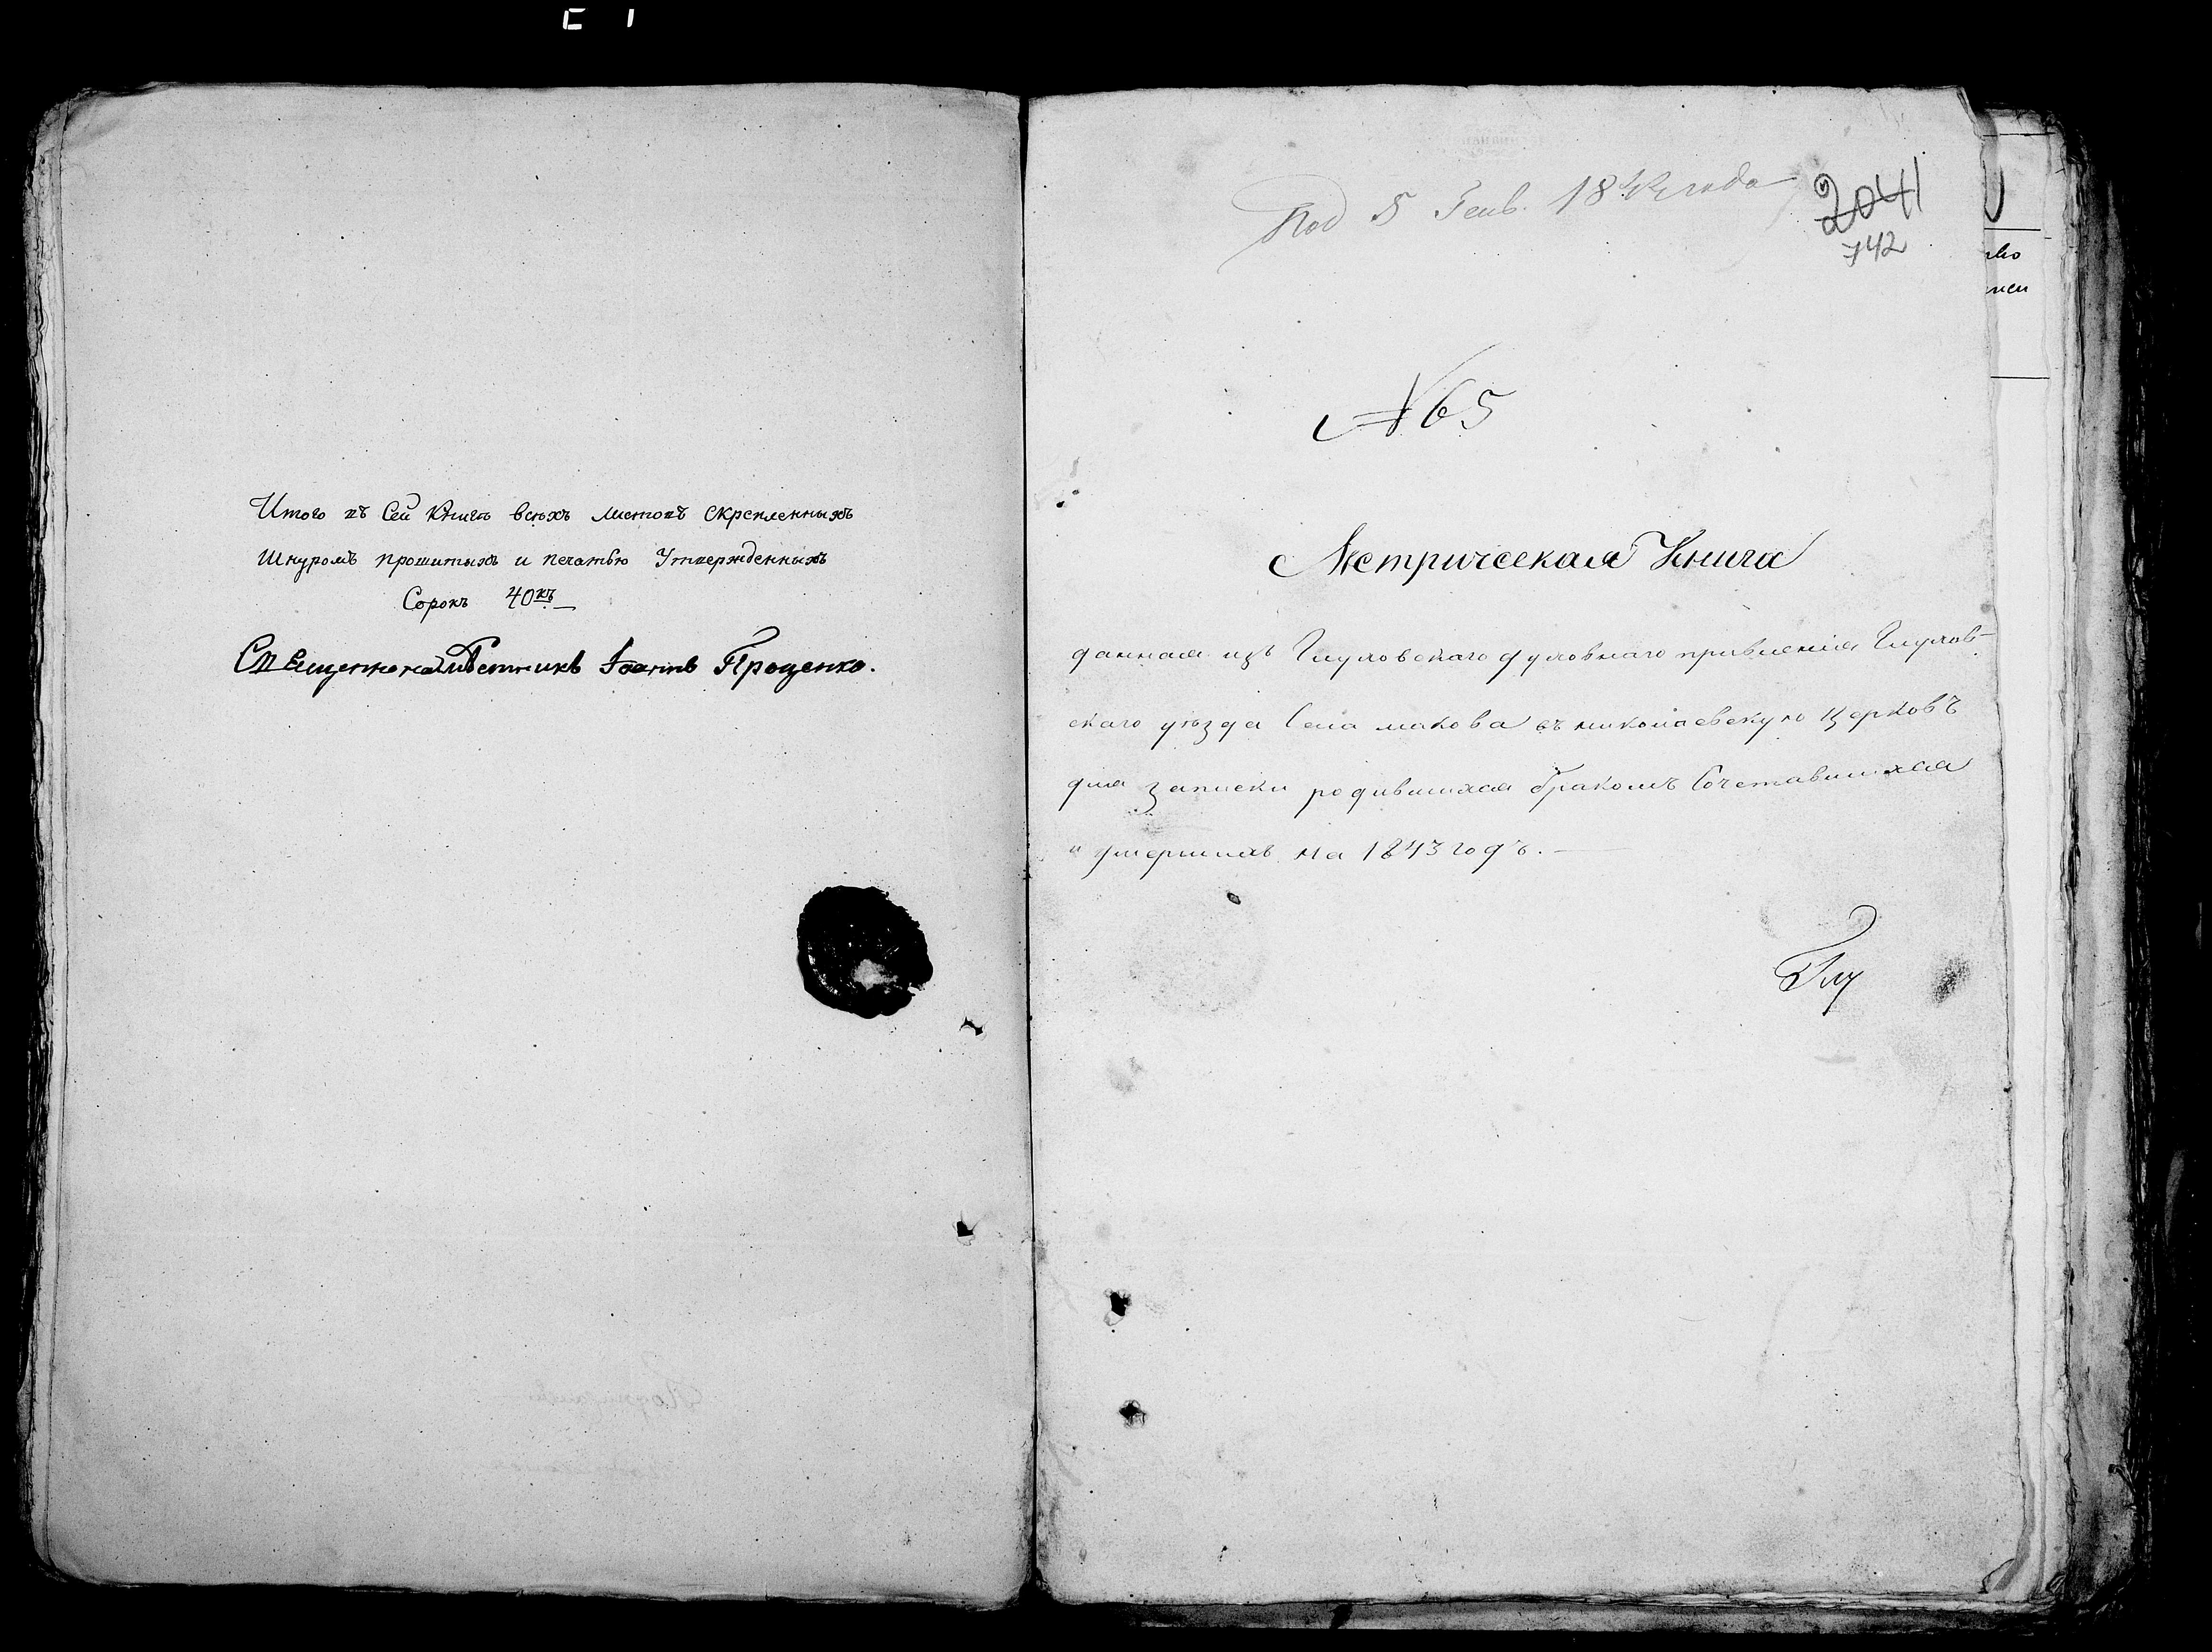 Итого въ Сей Книгѣ всѣхъ листовъ скрепленныхъ
Шнуромъ прошитыхъ и печатью Утвержденныхъ
Сорокъ 40къ
Священнонамѣстникъ Іоаннъ Проценко.
Под 5 Генв. 1844 года
2041
742
№ 65
Метрическая Книга
данная изъ Глуховскаго духовнаго правленія Глухов-
скаго уѣзда Села макова въ николаевскую Церковъ
для записки родившихся бракомъ Сочетавшихся
и умершихъ на 1843 годъ.
Глу